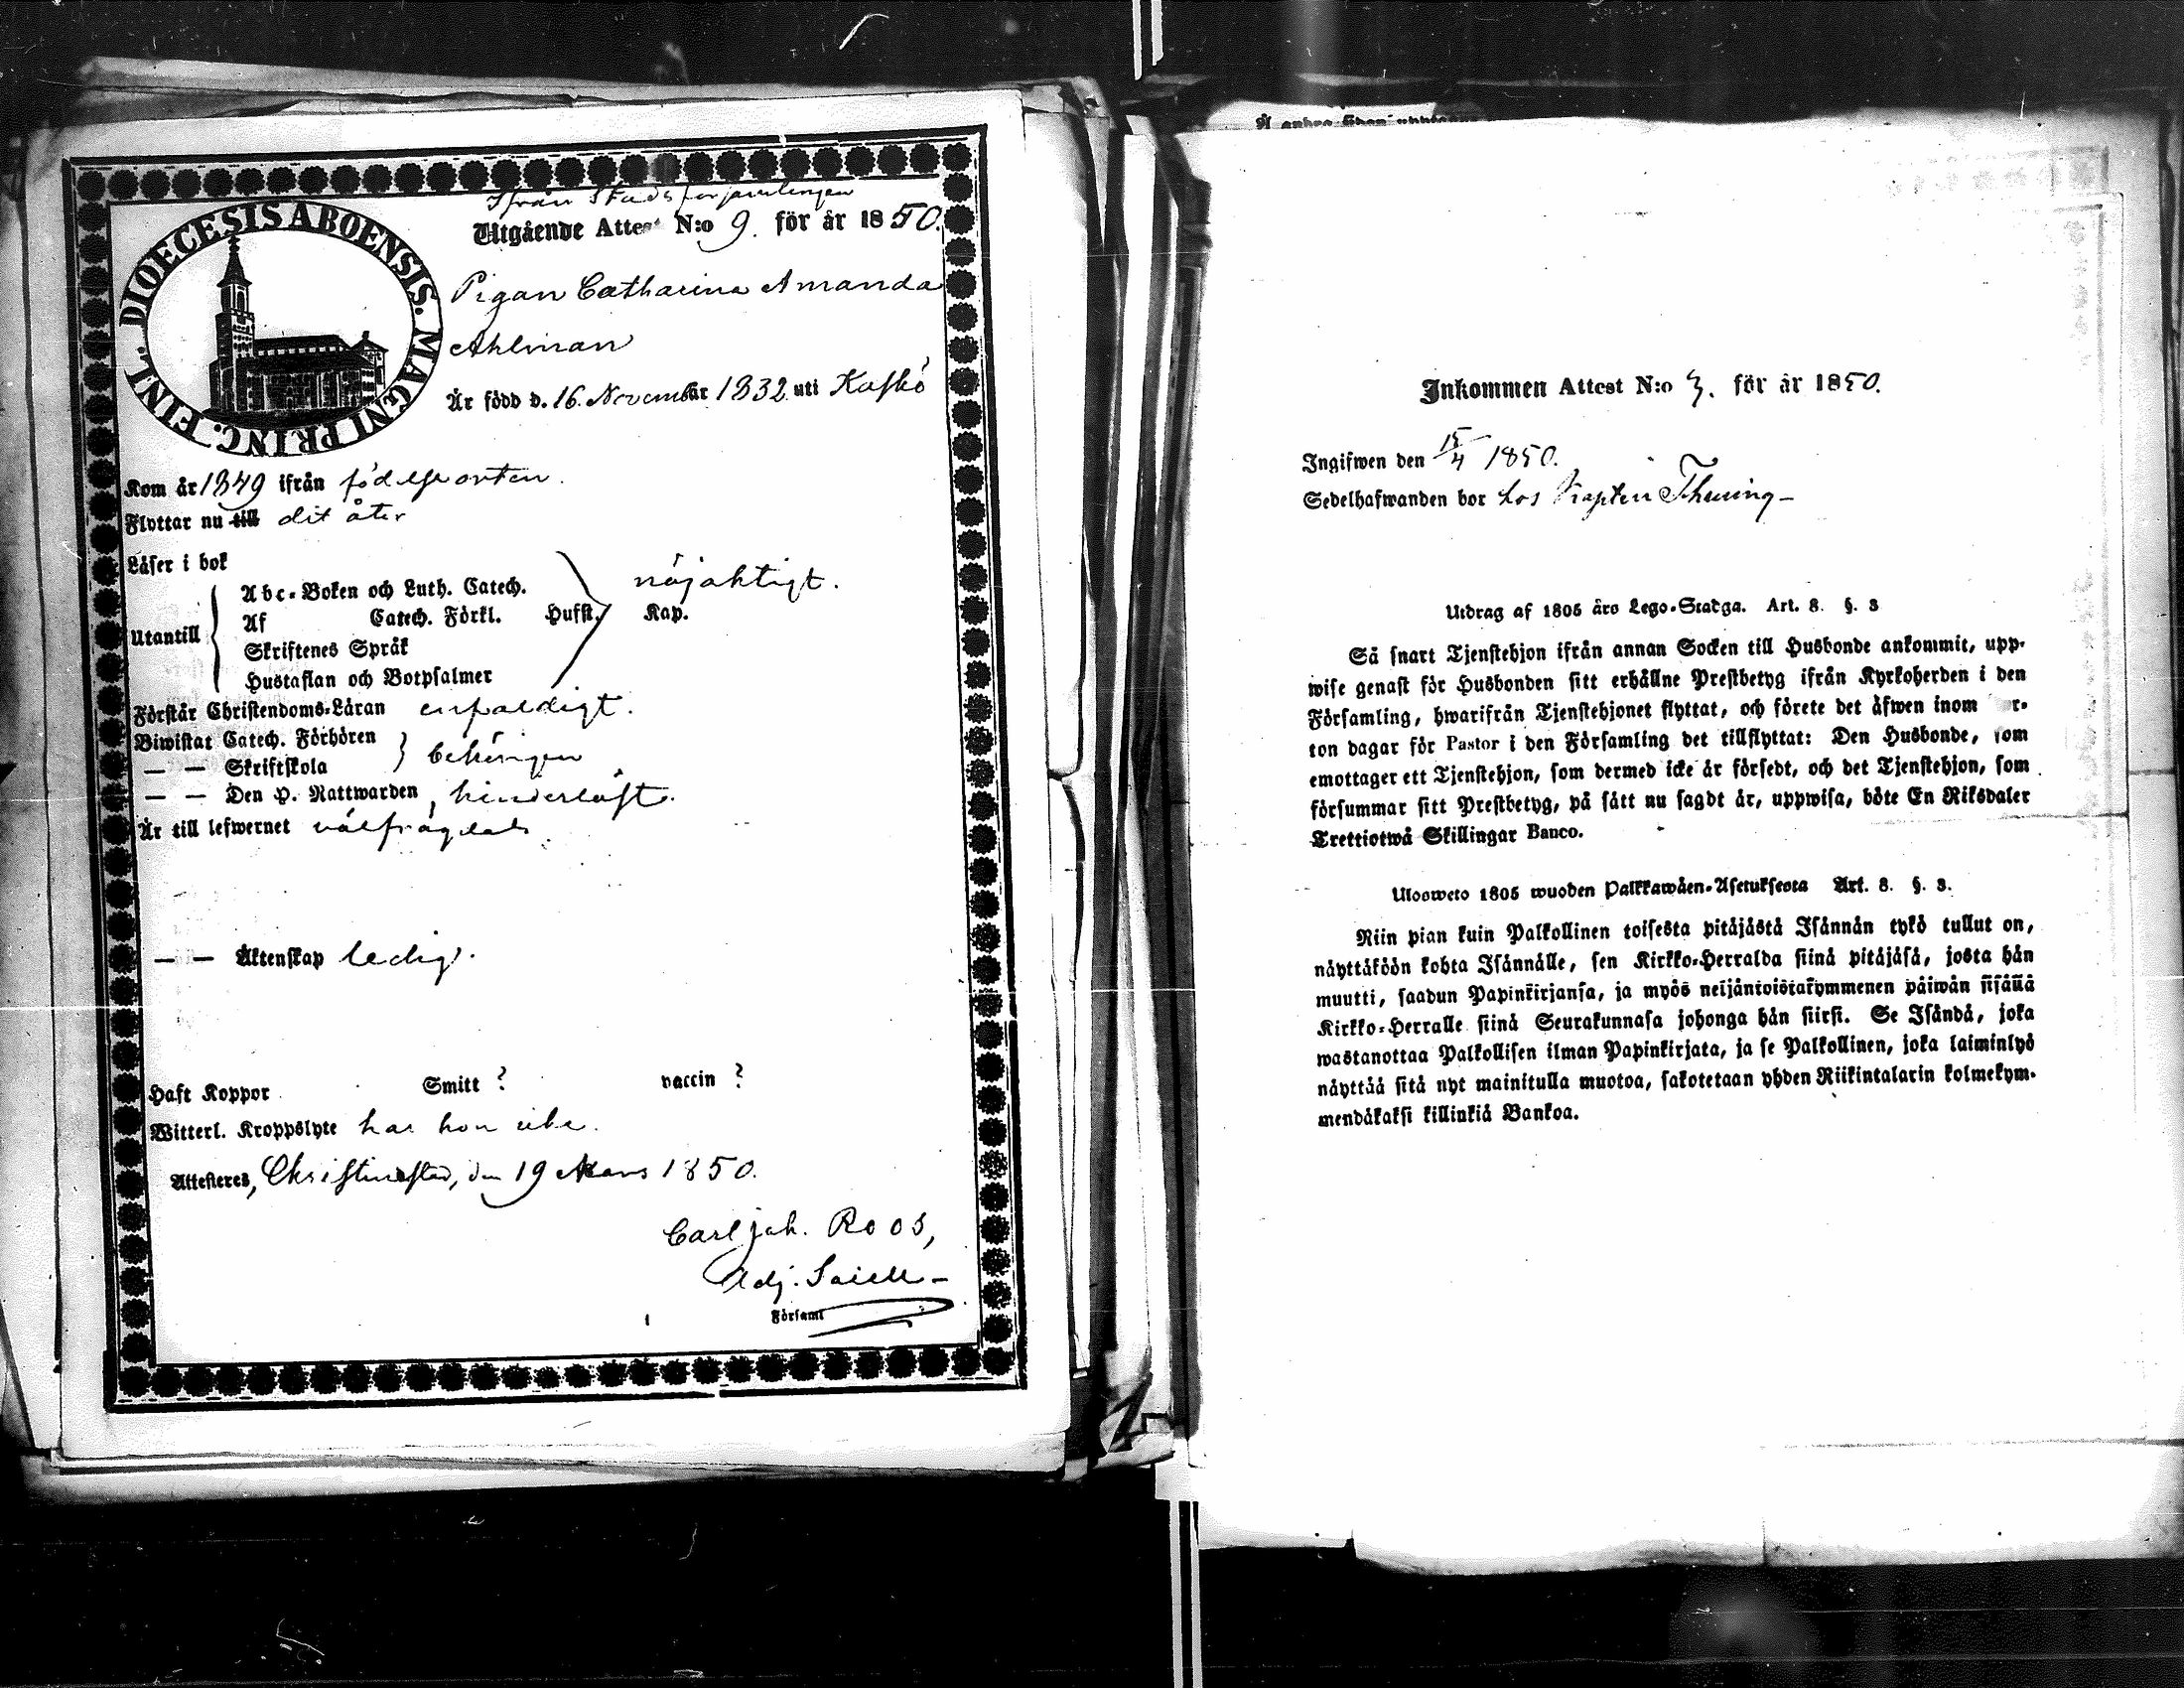 Ifrån Stadsförsamlingen
Utgående Attest N:o 9. för år 1850.
DIOECESIS ABOENSIS. MAGNI PRINC. FINL.
Pigan Catharina Amanda
Ahlman
Är född d. 16. November 1832 uti Kaskö
Kom år 1849 ifrån födelseorten.
Flyttar nu till dit åter
Läser i bok
Abc-Boken och Luth. Catech. nöjaktigt.
Utantill Af Catech. Förkl. Husst. Kap.
Skriftenes Språk
Hustaflan och Botpsalmer
Förstår Christendoms-Läran enfaldigt.
Biwistat Catech. Förhören
— — Skriftskola behörigen
— — Den H. Nattwarden, hinderlöst.
Är till lefwernet välfrägdad
— — Äktenskap ledig.
Haft Koppor Smitt ? vaccin ?
Witterl. Kroppslyte har hon icke.
Attesteres, Christinestad, den 19 Mars 1850.
Carl Joh. Roos,
Adj. Sacell.
Församl
Inkommen Attest N:o 3. för år 1850.
Ingifwen den 15/4 1850.
Sedelhafwanden bor hos Kapten Thuring
Utdrag af 1805 års Lego-Stadga. Art. 8. §. 3
Så snart Tjenstehjon ifrån annan Socken till Husbonde ankommit, upp-
wise genast för Husbonden sitt erhållne Prestbetyg ifrån Kyrkoherden i den
Församling, hwarifrån Tjenstehjonet flyttat, och förete det äfwen inom r-
ton dagar för Pastor i den Församling det tillflyttat: Den Husbonde, som
emottager ett Tjenstehjon, som dermed icke är försedt, och det Tjenstehjon, som
försummar sitt Prestbetyg, på sätt nu sagdt är, uppwisa, böte En Riksdaler
Trettiotwå Skillingar Banco.
Ulosweto 1805 wuoden Palkkawäen-Asetuksesta Art. 8. §. 3.
Niin pian kuin Palkollinen toisesta pitäjästä Isännän tykö tullut on,
näyttäköön kohta Isännälle, sen Kirkko-Herralda siinä pitäjäsä, josta hän
muutti, saadun Papinkirjansa, ja myös neljäntoistakymmenen päiwän sisällä
Kirkko-Herralle siinä Seurakunnasa johonga hän siirsi. Se Isändä, joka
wastanottaa Palkollisen ilman Papinkirjata, ja se Palkollinen, joka laiminlyö
näyttää sitä nyt mainitulla muotoa, sakotetaan yhden Riikintalarin kolmekym-
mendäkaksi killinkiä Bankoa.